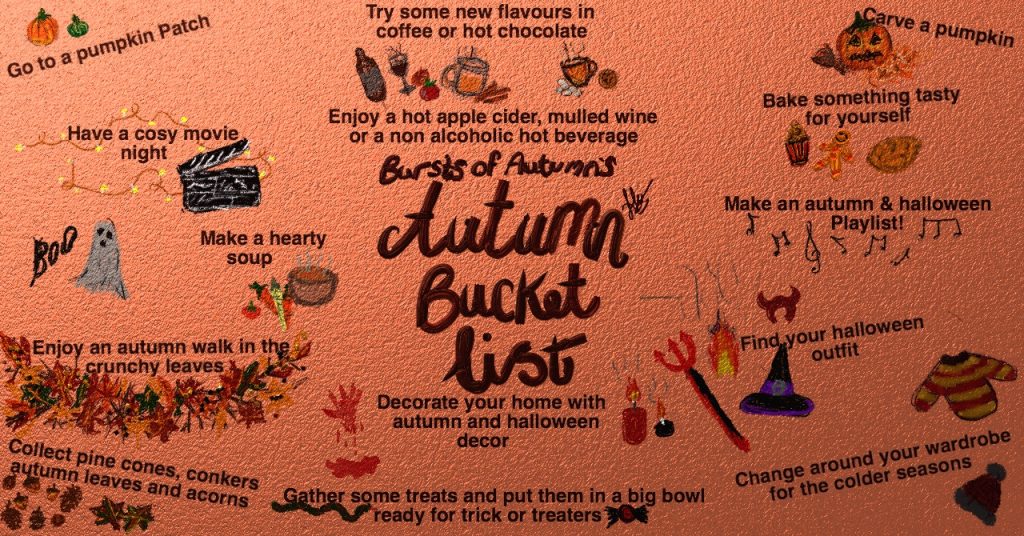 Go to a pumpkin Patch
Try some new flavours in
coffee or hot chocolate
Carve a pumpkin
Enjoy a hot apple cider, mulled wine
or a non alcoholic hot beverage
Bake something tasty
for yourself
Have a cosy movie
night
Bursts of Autumn's
Autumn
Bucket
List
Make an autumn & halloween
Playlist!
BOO
Make a hearty
soup
Find your halloween
outfit
Enjoy an autumn walk in the
crunchy leaves
Decorate your home with
autumn and halloween
decor
Collect pine cones, conkers
autumn leaves and acorns
Change around your wardrobe
for the colder seasons
Gather some treats and put them in a big bowl
ready for trick or treaters